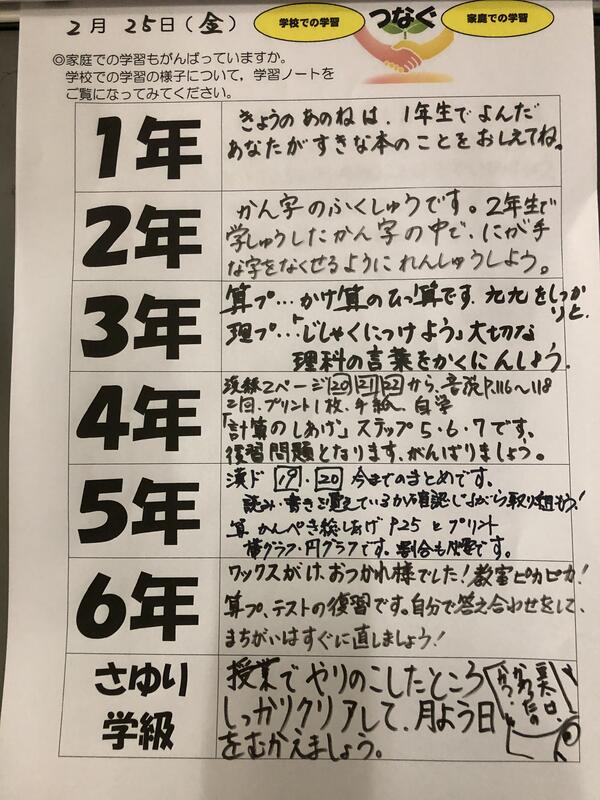 2月 25日(金)
学校での学習
つなぐ
家庭での学習
◎家庭での学習もがんばっていますか。
学校での学習の様子について，学習ノートを
ご覧になってみてください。
1年
きょうの あのね は、1年生で よんだ
あなたが すきな 本の ことを おしえてね。
2年
かん字 の ふくしゅうです。2年生で
学しゅうした かん字 の 中で、にが手
な字を なくせるように れんしゅうしよう。
3年
算プ… かけ算のひっ算です. 九九をしっかりと.
理プ…「じしゃくにつけよう」大切な
理科の言葉をかくにんしよう.
4年
漢練2ページ 20 21 22 から、音読P.116〜118
2回. プリント1枚、手紙、自学
「計算のしあげ」ステップ5・6・7です。
復習問題となります、がんばりましょう。
5年
漢ド 19・20 今までのまとめです。
読み・書きを覚えているか確認しながら取り組もう!
算 かんぺき総しあげ P25 と プリント
帯グラフ・円グラフです。割合も必要です。
6年
ワックスがけ、おつかれ様でした! 教室ピカピカ!
算プ、テストの復習です。自分で答え合わせをして、
まちがいはすぐに直しましょう!
さゆり
学級
授業で やりのこしたところ
しっかりクリアして、月よう日
をむかえましょう。